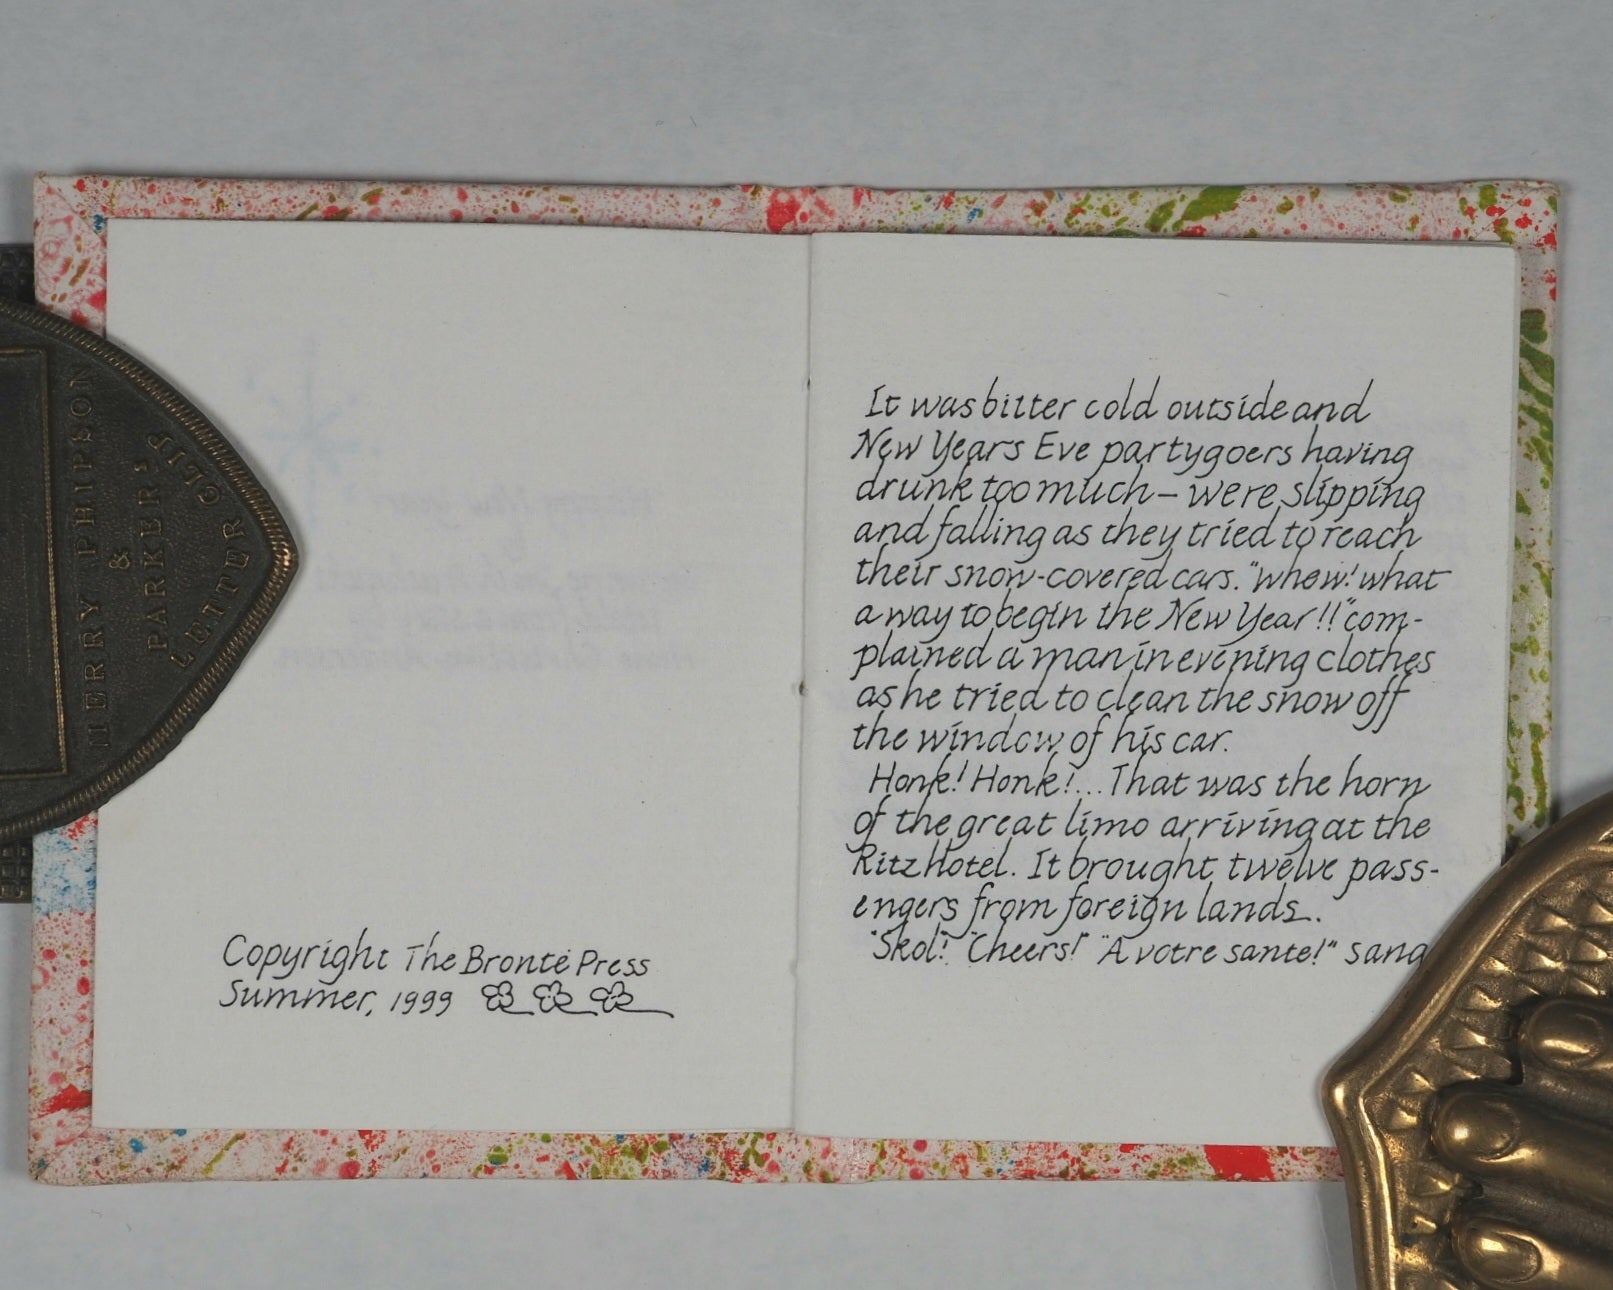 MERRY PHIPSON
&
PARKER'S
LETTER CLIP
Copyright The Brontë Press
Summer, 1999
It was bitter cold outside and
New Year's Eve partygoers having
drunk too much – were slipping
and falling as they tried to reach
their snow-covered cars. "Whew! what
a way to begin the New Year!!" com-
plained a man in evening clothes
as he tried to clean the snow off
the window of his car.
Honk! Honk!... That was the horn
of the great limo arriving at the
Ritz Hotel. It brought twelve pass-
engers from foreign lands.
"Skol!" "Cheers!" "A votre sante!" sang